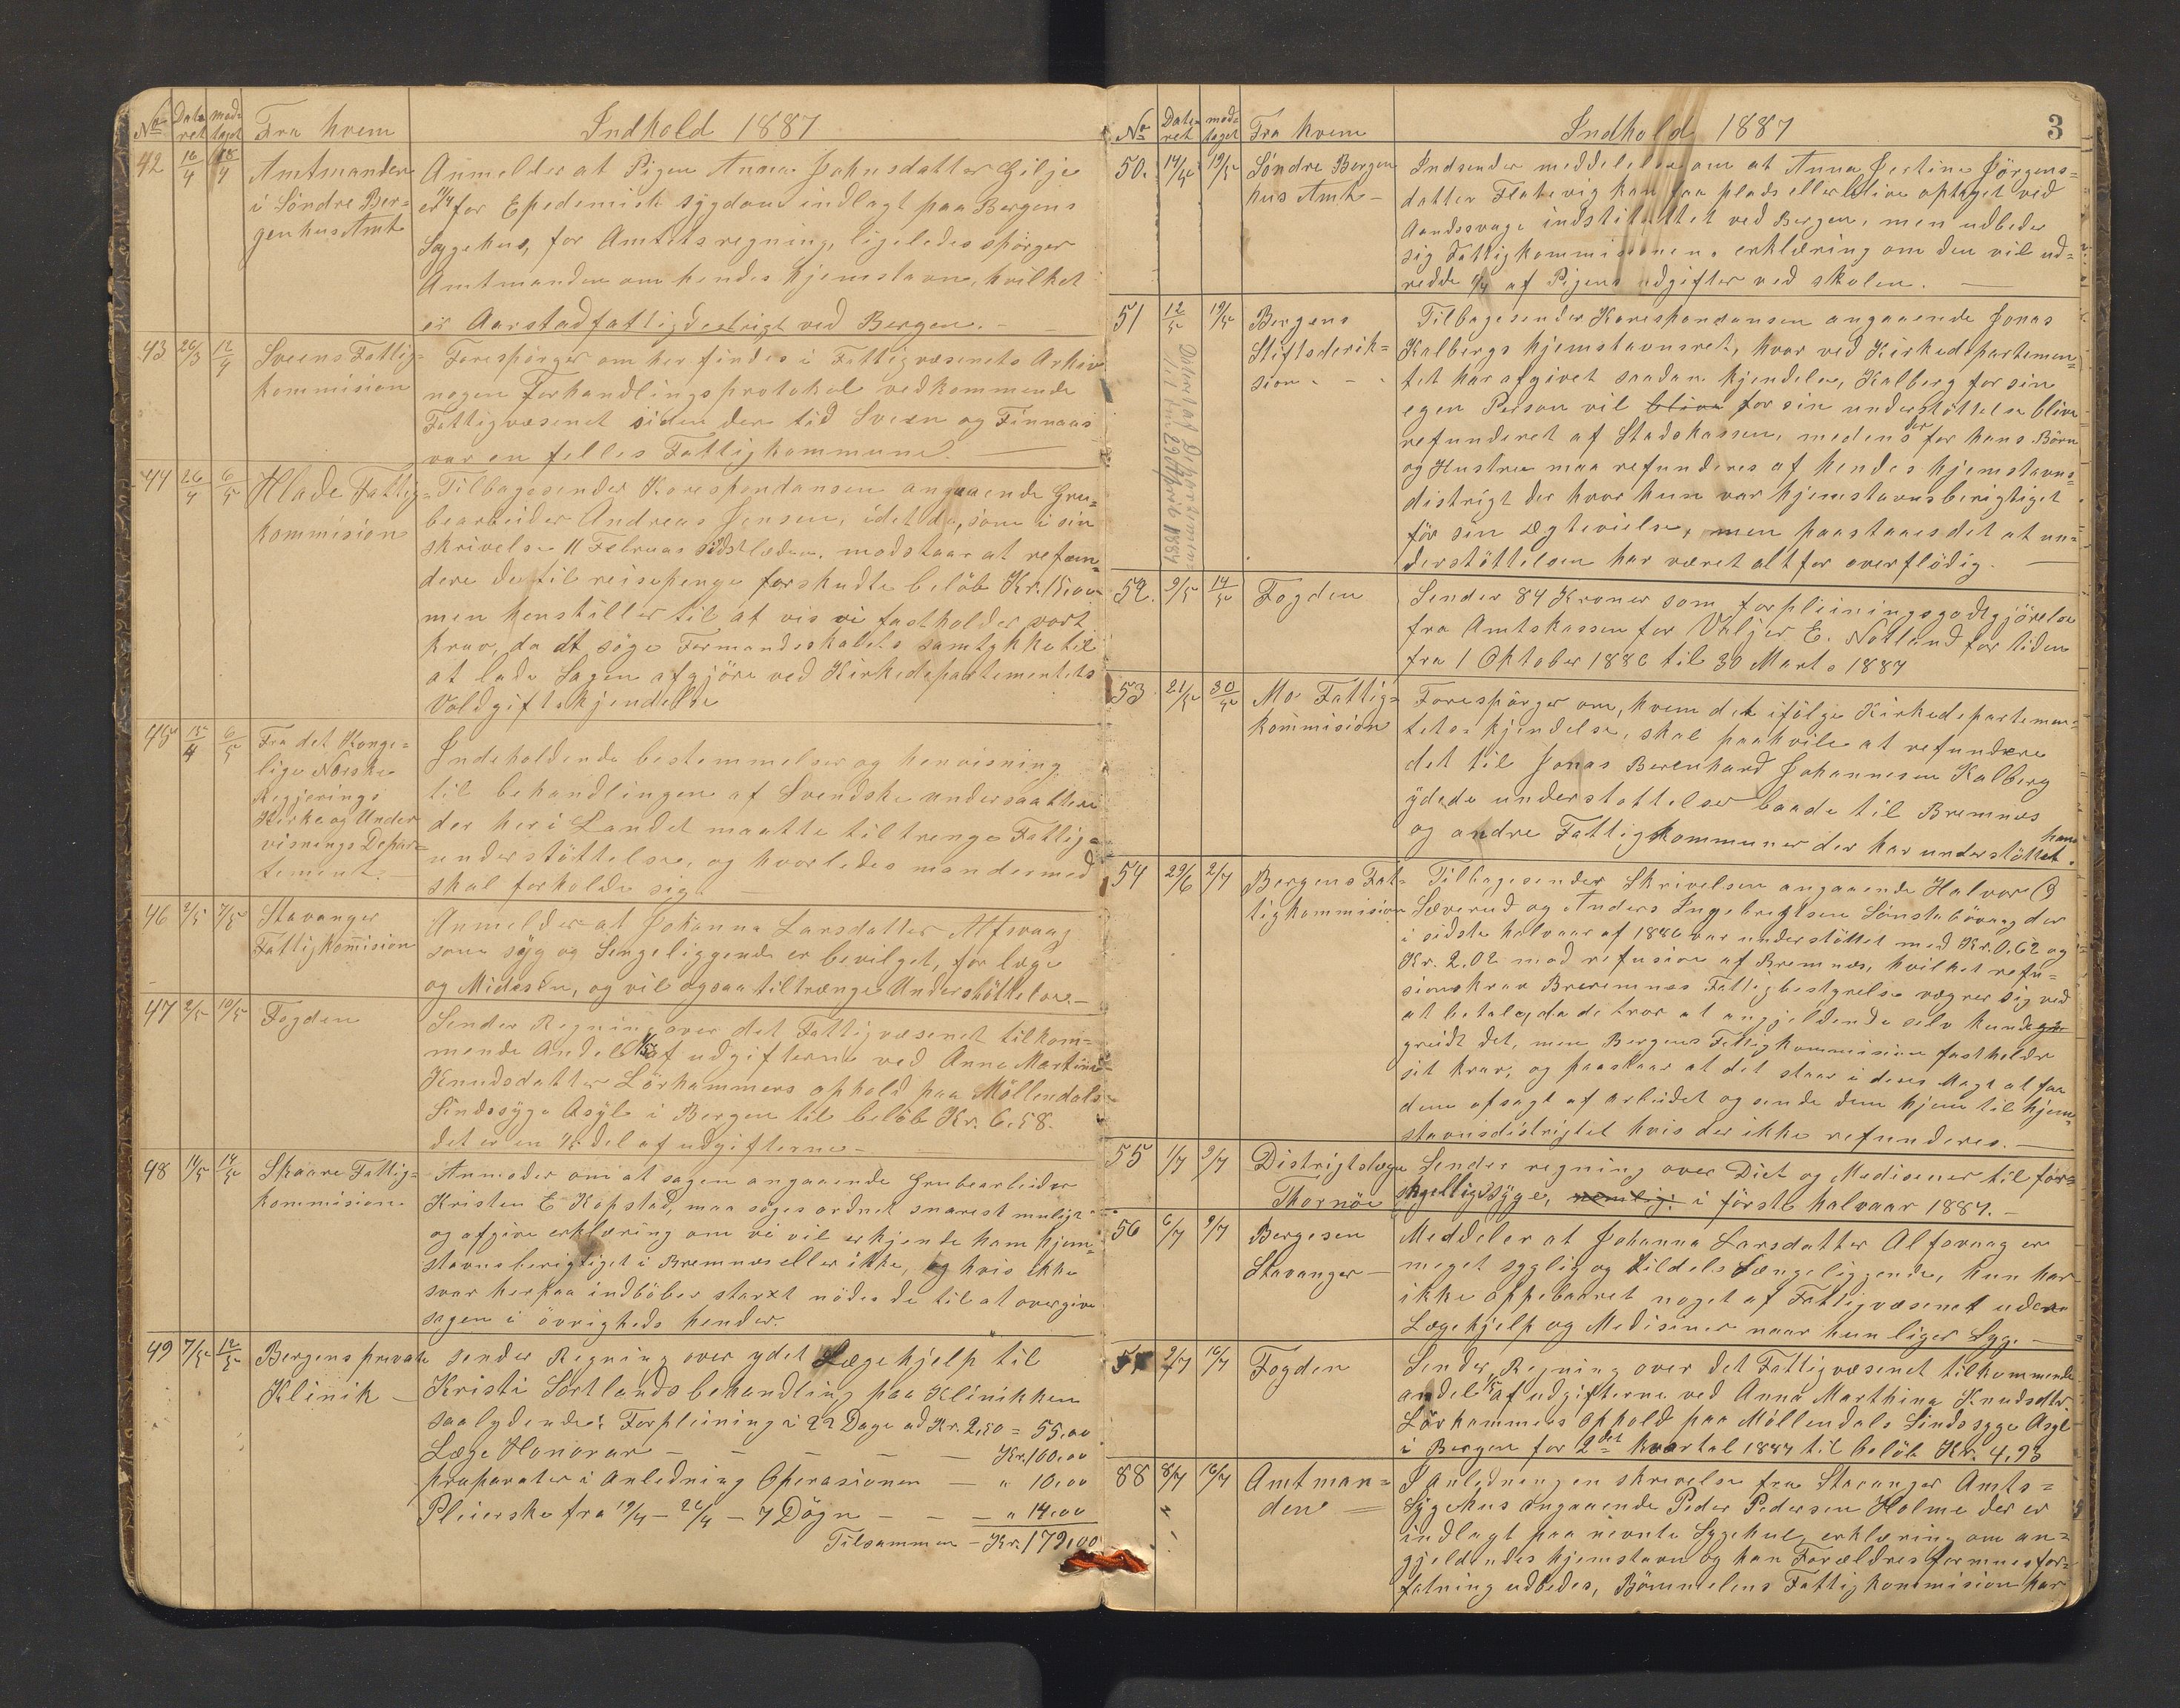 No Dateret modtaget Fra hvem Indhold 1887
42 16/4 18/4 Amtmanden Anmelder at Pigen Anna Johnsdatter Gilje
i Söndre Ber= er 11/4 for Epedemisk sygdom indlagt paa Bergens
genhus Amt Sygehus, for Amtets regning, ligeledes spörger
Amtmanden om hendes hjemstavn, hvilket
er Aarstad fattigdestrigt ved Bergen. —
43 26/3 12/4 Sveens Fattig= Forespörger om her findes i Fattigvæsenets Arkiv
kommision nogen Forhandlingsprotokol vedkommende
Fattigvæsenet siden den tid Sveen og Finnaas
var en felles Fattigkommune. —
44 26/4 6/5 Hlade Fattig= Tilbagesender Korespondansen angaaende Gru=
kommision bearbeider Andreas Jensen, idet de, som i sin
skrivelse 11 Februar sidstleden, modstaar at refun=
dere de til reisepenge forskudte belöb Kr. 15,00
men henstiller til at vis vi fastholder vort
krav, da at söge Formandskabets samtykke til
at lade Sagen afgjöre ved Kirkedepartementets
Voldgiftskjendelse
45 15/4 6/5 Fra det Konge= Indeholdende bestemmelser og henvisning
lige Norske til behandlingen af Svendske undersaatter
Regjerings der her i Landet maatte tiltrenge Fattig=
Kirke og Under understöttelse, og hvorledes man dermed
visnings Depar= skal forholde sig. —
tement. —
46 2/5 7/5 Stavanger Anmelder at Johanna Larsdatter Alfsvaag
Fattigkomision som syg og Sengeliggende er bevilget, for læge
og Midesin, og vil ogsaa tiltrænge Understöttelse —
47 2/5 10/5 Fogden Sender Regning over det Fattigvæsenet tilkom=
mende Andel 1/5 af udgifterne ved Anna Martine
Knudsdatter Lörhammers ophold paa Möllendals
Sindssyge Asyl i Bergen til belöb Kr. 6,58.
det er en 1/5 del af udgifterne —
48 11/5 14/5 Skaare Fattig= Anmoder om at sagen angaaende Grubearbeider
kommision. Kristen E Kopstad, maa söges ordnet snarest muligt
og afgive erklæring om vi vil erkjende ham hjem=
stavnsberigtiget i Bremnæs eller ikke, og hvis ikke
svar herpaa indlöber straxt nödes de til at overgive
sagen i övrigheds hender.
49 7/5 12/5 Bergens privat sender Regning over ydet Lægehjelp til
Klinik — Kristi Sortlands behandling paa Klinikken
saalydende: Forpleining i 22 Dage ad Kr. 2,50 = 55,00
Læge Honorar — — — — Kr. 100,00
præparater i Anledning Operasionen — " 10,00
Pleierske fra 19/4 — 26/4 — 7 Dögn — — " 14,00
Tilsammen — Kr. 179,00
3
No Dateret modtaget Fra hvem Indhold 1887
50. 14/5 19/5 Söndre Bergen Indsender meddelelse om at Anna Jertine Jörgens=
hus Amt — datter Flatevig kan faa plads eller blive optaget ved
Aandssvage indstituttet ved Bergen, men udbeder
sig Fattigkommissionens erklæring om den vil ud=
redde 1/4 af Pigens udgifter ved skolen. —
51 12/5 19/5 Bergens Tilbagesender Korespondansen angaaende Jonas
Stiftsderik= Kalbergs hjemstavnsret, hvor ved Kirkedepartemen=
sion — tet har afgivet saadan kjendelse, Kalberg for sin
egen Person vil blive for sin understöttelse blive
refunderet af Stadskassen, medens der for hans Börn
og Hustru maa refunderes af hendes hjemstavns=
distrigt der hvor hun var hjemstavnsberigtiget
för sin ægtevielse, men paastaaes det at un=
derstöttelsen har været alt for overflödig. —
52. 9/5 14/5 Fogden Sender 84 Kroner som forpleiningsgodtgjörelse
fra Amtskassen for Viljer E. Notland for tiden
fra 1 Oktober 1886 til 30 Marts 1887
53 21/5 30/5 Mo Fattig= Forespörger om, hvem det ifölge Kirkedepartemen=
kommision tets kjendelse, skal paahvile at refundere
det til Jonas Berenhard Johannesen Kalberg
ydede understottelser baade til Bremnæs
og andre Fattigkommuner der har understöttet ham.
54 29/6 2/7 Bergens Fat= Tilbagesender Skrivelsen angaaende Halvor O
tigkommision Sæverud og Anders Ingebrigtsen Sönstabövaag der
i sidste halvaar af 1886 var understöttet med Kr. 0,62 og
Kr. 2,02 mod refusion af Bremnæs, hvilket refu=
sionskrav Bremnæs Fattigbestyrelse vægrer sig ved
at betale, da de tror at angjeldende selv kunde
greidt det, men Bergens Fattigkommision fastholder
sit krav, og paastaar at det staar i deres Magt at faa
dem afsagt af arbeidet og sende dem hjem til hjem=
stavnsdistrigtet hvis der ikke refunderes. —
55 1/7 9/7 Distrigtslæge Sender regning over Diet og Medisiner til for=
Thornöe skjellige Syge, nemlig: i förste halvaar 1887. —
56 6/7 9/7 Bergesen Meddeler at Johanna Larsdatter Alfsvaag er
Stavanger — meget sygelig og tildels Sængeliggende, hun har
ikke oppebaaret noget af Fattigvæsenet uden
Lægehjelp og Medisiner naar hun liger Syg. —
57 9/7 16/7 Fogden Sender Regning over det Fattigvæsenet tilkommende
andel 1/5 af udgifterne ved Anna Marthina Knudsdtr
Lörhammers ophold paa Möllendals Sindssyge Asyl
i Bergen for 2det kvartal 1887 til belöb Kr. 4,93
88 8/7 16/7 Amtman= I Anledning en skrivelse fra Stavanger Amts=
den — Sygehus angaaende Peder Pedersen Holme der er
indlagt paa nevnte Sygehus, erklæring om an=
gjeldendes hjemstavn og han Forældres formuesfor=
fatning udbedes, Bömmelens Fattigkommision har